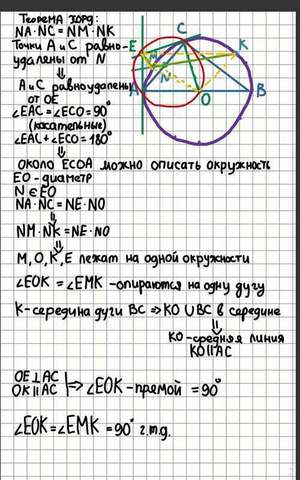 Теорема хорд:
NA·NC = NM·NK
Точки A и C равно-
удалены от N
⇓
A и C равноудалены
от OE
∠EAC = ∠ECO = 90°
(касательные)
∠EAC + ∠ECO = 180°
⇓
Около ECOA можно описать окружность
EO - диаметр
N ∈ EO
NA·NC = NE·NO
⇓
NM·NK = NE·NO
⇓
M, O, K, E лежат на одной окружности
∠EOK = ∠EMK - опираются на одну дугу
K - середина дуги BC ⇒ KO ∪ BC в середине
⇓
KO - средняя линия
KO || AC
OE ⊥ AC
OK || AC
⇒ ∠EOK - прямой = 90°
∠EOK = ∠EMK = 90° ч.т.д.
C
E
K
M
N
A
O
B